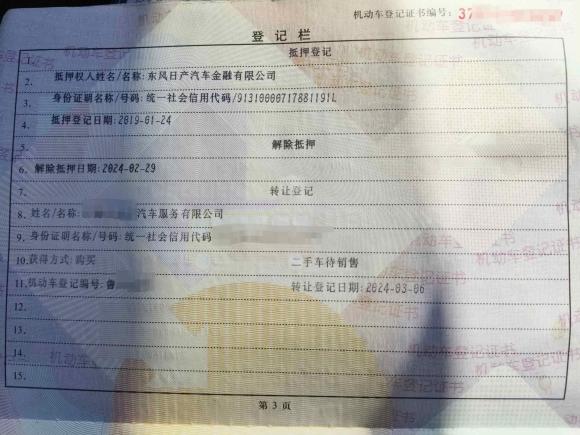 机动车登记证书编号：37
登记栏
1. 抵押登记
2. 抵押权人姓名/名称:东风日产汽车金融有限公司
3. 身份证明名称/号码:统一社会信用代码/91310000717881191L
4. 抵押登记日期:2019-01-24
5. 解除抵押
6. 解除抵押日期:2024-02-29
7. 转让登记
8. 姓名/名称: 汽车服务有限公司
9. 身份证明名称/号码:统一社会信用代码
10. 获得方式:购买 二手车待销售
11. 机动车登记编号:鲁 转让登记日期:2024-03-06
12.
13.
14.
15.
第 3 页